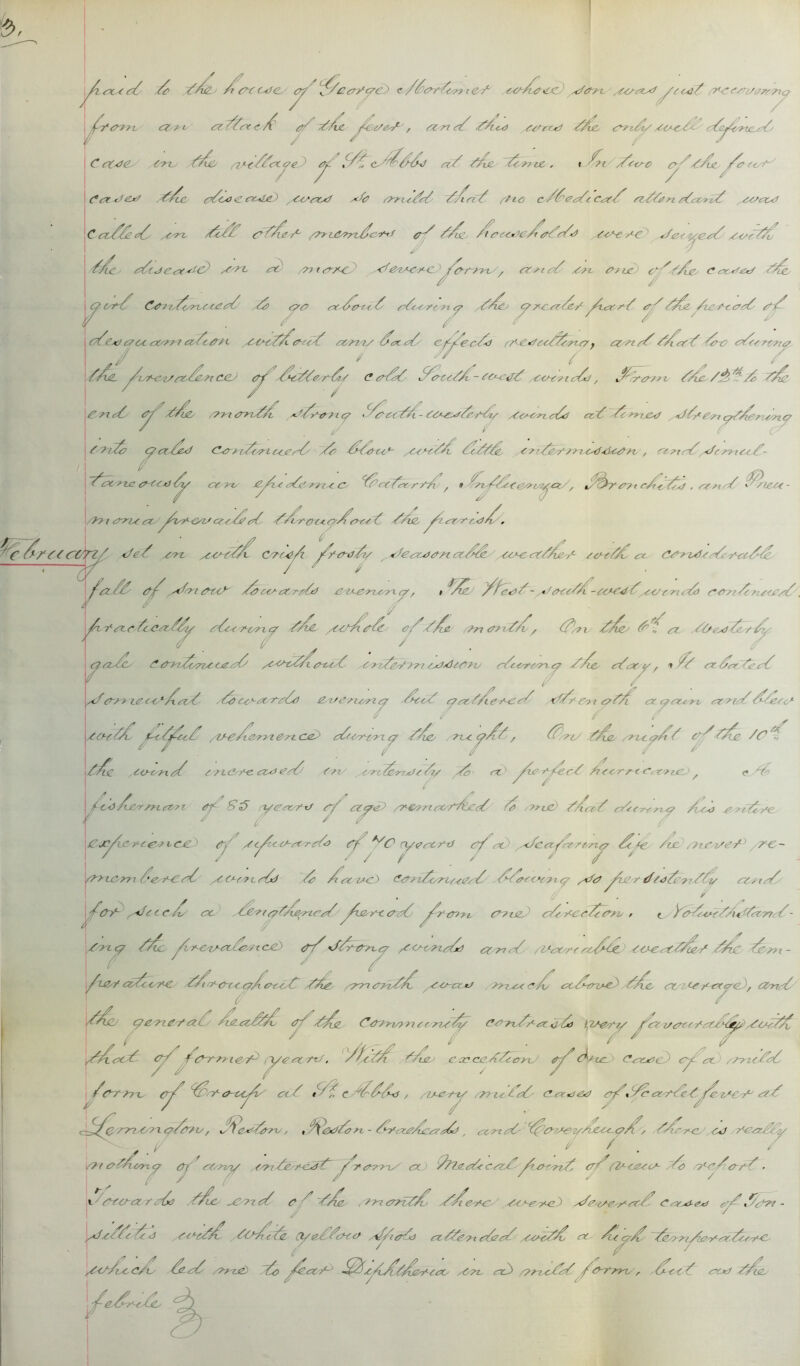 3.
paid to the house of George Mortimer whose son was just recovering
from an attack of the fever, and this was the only well defined
Case in the village of St. Abbs at the time. In two of the four
Cases the disease was so mild that no Medical attendant was
Called in till other members of the households were seized with
the disease in a more severe form, and in one of the cases the
girl Continued to go about during the greater part of the period of
desquamation without any bad effects resulting, and that too during
the prevalence of bitterly cold South-west winds, From the 12th to the
end of the month strong South-westerly winds at times strengthening
into gales continued to blow with little intermission, and simul-
taneously an epidemic Catarrh, Influenza, Bronchitis. and Pneu-
monia prevailed throughout the parish.
February set in with crisp frosty seasonable weather with a considerable
fall of snow towards evening, The West-south-west winds continued
practically during the whole of the month, On the 6th a Westerly
gale continued without intermission during the day, It abated
somewhat towards evening but gathered strength again and blew
with fitful vehemence during the night, On the night of the 10th
the wind increased in intensity to a perfect hurricane, A
fisherman of 85 years of age remarked to me that during his entire
experience of upwards of 70 years of a seafaring life he never re-
membered winds to have continued blowing so persistently and
for such a lengthened period from one direction. Notwithstand-
ing the prevalence of strong winds and variable weather the tem-
perature throughout the month was much above the average, and
the general health of the Community contrasts very favourably with
that of former years. With the exception of one case of a mild
form of Croup at St. Abbs, very mild cases of Scarlet fever at
Lemington, Reston, Reston-Braeheads, and Coveyheugh, there is really
nothing of any interest from a Medical point of view to report.
Towards the end of the month there were several cases of Ton-
sillitis with white yellow spots attended with a high temperature
which led me to fear Diphtheria in a mild form, but as the
febrile